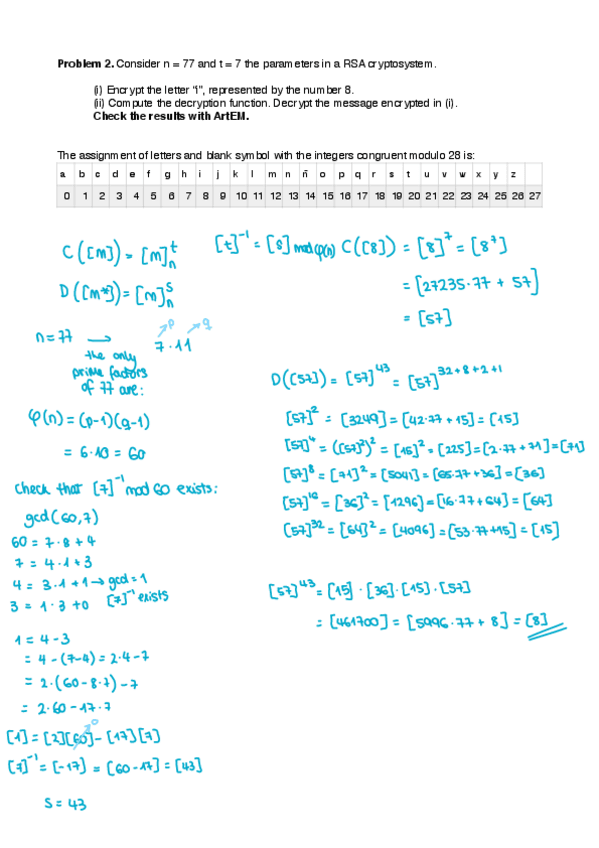 Problem 2. Consider n = 77 and t = 7 the parameters in a RSA cryptosystem.
(i) Encrypt the letter "i", represented by the number 8.
(ii) Compute the decryption function. Decrypt the message encrypted in (i).
Check the results with ArtEM.
The assignment of letters and blank symbol with the integers congruent modulo 28 is:
a b c d e f g h i j k l m n ñ o p q r s t u v w x y z
0 1 2 3 4 5 6 7 8 9 10 11 12 13 14 15 16 17 18 19 20 21 22 23 24 25 26 27
C([m]) = [m]ᵗₙ
D([m*]) = [m]ˢₙ
n=77 → 7·11
p q
the only
prime factors
of 77 are:
φ(n) = (p-1)(q-1)
= 6·10 = 60
check that [7]⁻¹ mod 60 exists:
gcd(60,7)
60 = 7·8 + 4
7 = 4·1 + 3
4 = 3·1 + 1 → gcd = 1
[7]⁻¹ exists
3 = 1·3 + 0
1 = 4-3
= 4 - (7-4) = 2·4 - 7
= 2·(60 - 8·7) - 7
= 2·60 - 17·7
[1] = [2][60] - [17][7]
0
[7]⁻¹ = [-17] = [60-17] = [43]
s = 43
[t]⁻¹ = [s] mod φ(n)
C([8]) = [8]⁷ = [8⁷]
= [27235·77 + 57]
= [57]
D([57]) = [57]⁴³ = [57]³²⁺⁸⁺²⁺¹
[57]² = [3249] = [42·77 + 15] = [15]
[57]⁴ = ([57]²)² = [15]² = [225] = [2·77 + 71] = [71]
[57]⁸ = [71]² = [5041] = [65·77 + 36] = [36]
[57]¹⁶ = [36]² = [1296] = [16·77 + 64] = [64]
[57]³² = [64]² = [4096] = [53·77 + 15] = [15]
[57]⁴³ = [15]·[36]·[15]·[57]
= [461700] = [5996·77 + 8] = [8]